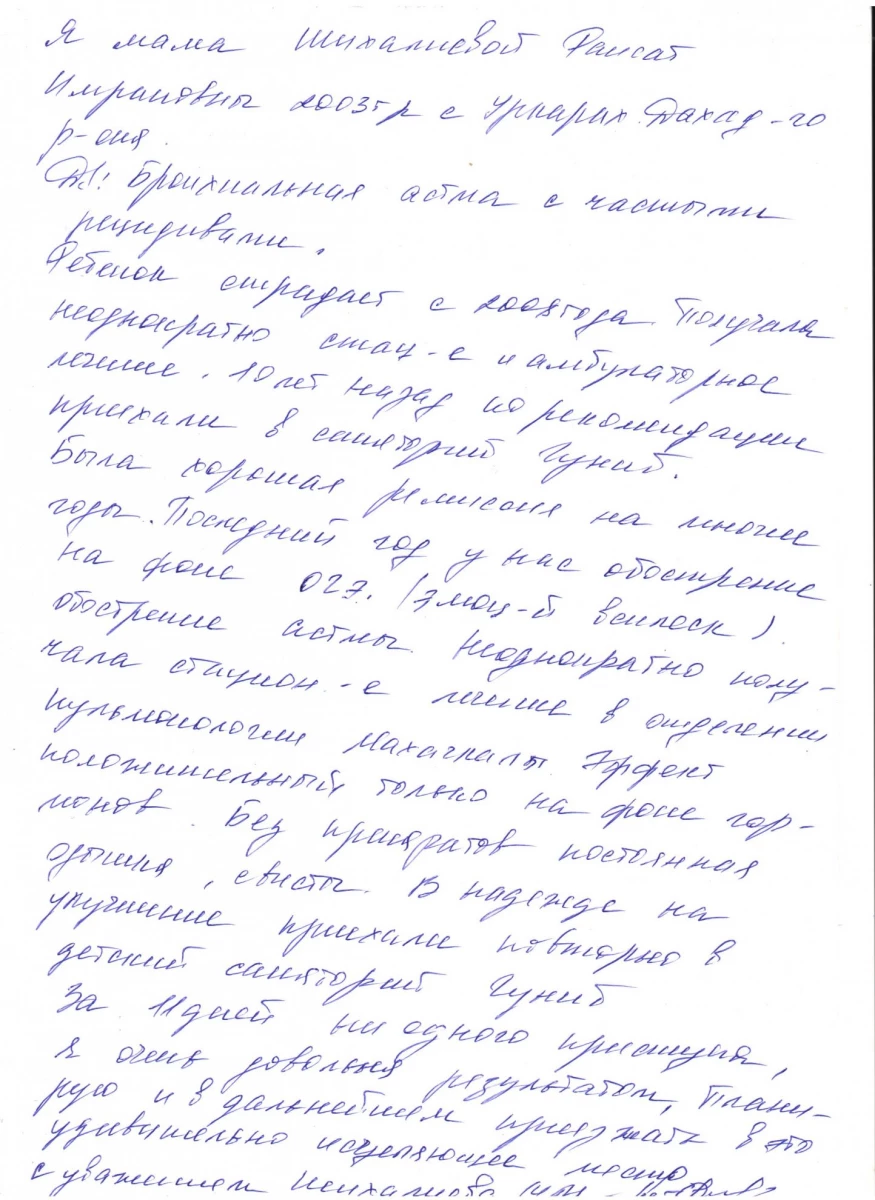 Я мама Шихалиевой Раисат
Имрановны 2003г р с Уркарах Дахад-го
р-она.
Дs: Бронхиальная астма с частыми
рецидивами.
Ребенок страдает с 2008 года. Получала
неоднократно стац-е и амбулаторное
лечение. 10 лет назад по рекомендации
приехали в санаторий Гуниб.
Была хорошая ремиссия на многие
годы. Последний год у нас обострение
на фоне ОГЭ. (эмоц-й всплеск).
обострение астмы. Неоднократно полу-
чала стацион.-е лечение в отделении
пульмонологии Махачкалы. Эффект
положительный только на фоне гор-
монов. Без препаратов постоянная
одышка, свисты. В надежде на
улучшение приехали повторно в
детский санаторий Гуниб
За 11 дней ни одного приступа,
я очень довольна результатом, Плани-
рую и в дальнейшем приезжать в это
удивительно исцеляющее место
с уважением Шихалиева